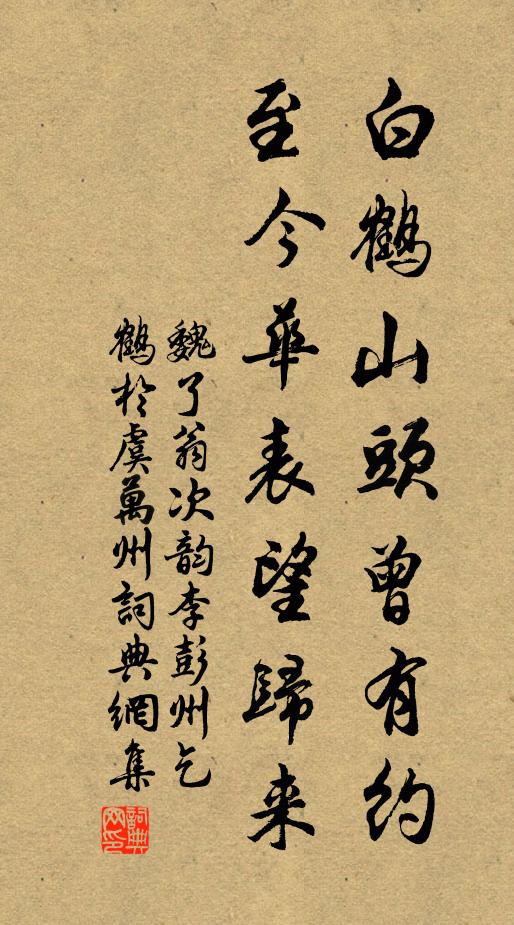 白鶴山頭曾有約
至今華表望歸来
魏了翁次韵李彭州乞
鶴於虞萬州詞典網集
詞典
网印